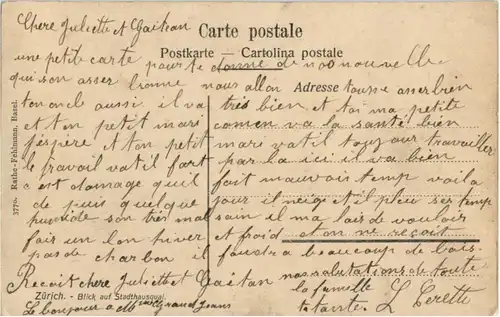 Chere Juliette et Gaitan
Carte postale
Postkarte — Cartolina postale
une petite carte pour te donne de nos nouvelle
qui son asser bonne nous allon tousse asser bien
Adresse
ton oncle aussi il va très bien et toi ma petite
et ton petit mari comen va la santé bien
j'espère et ton petit mari vatil toujour travailler
le travail vatil fort par la ici il va bien
c'est domage quil fait mauvais temp voila
de puis quelque jour il neige et il pleu ser temp
humide son très mal sain il ma lair de vouloir
fair un bon hiver et froid et on ne reçoit
pas de charbon il faudra beaucoup de bois
Reçoit chere Juliette et Gaitan nos salutations de toute
la famille
tante. L Cerette
Zürich. - Blick auf Stadthausquai.
Le bonjour a Mme Grand Jeans
3770. Rathe-Fehlmann, Basel.